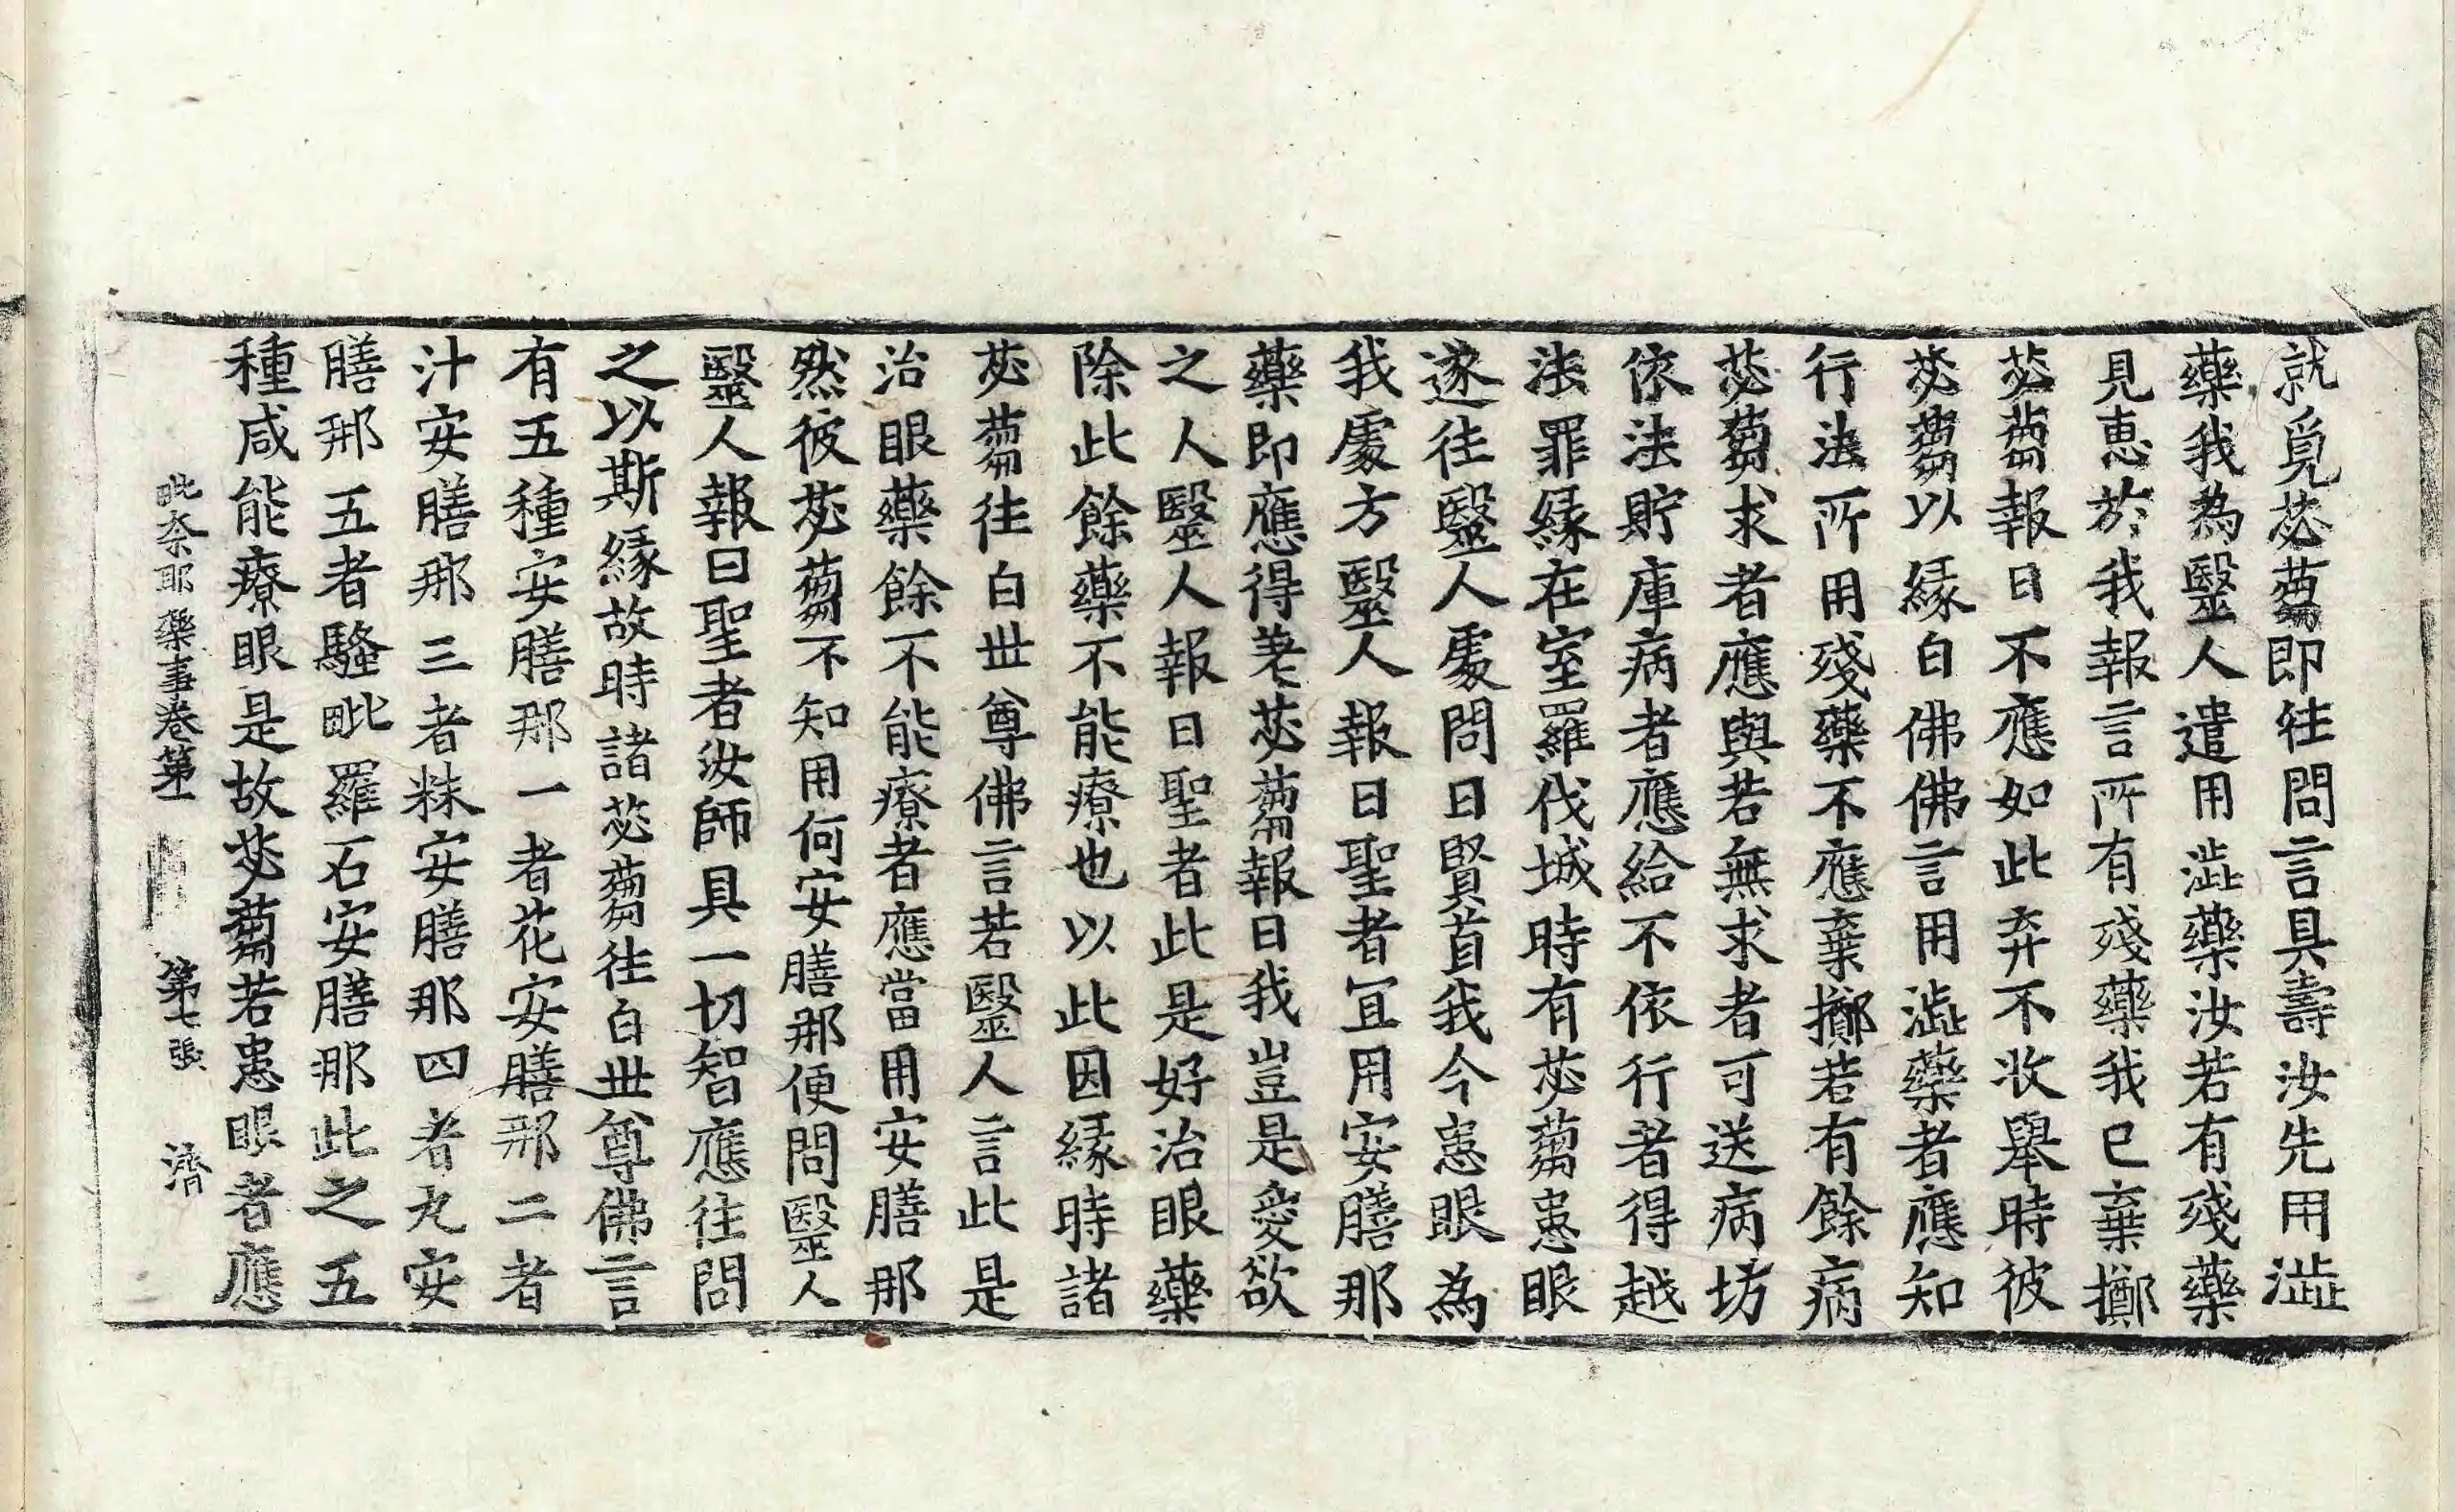 就覓苾蒭即往問言具壽汝先用澁
藥我為醫人遣用澁藥汝若有殘藥
見惠於我報言所有殘藥我已棄擲
苾蒭報曰不應如此弃不收舉時彼
苾蒭以緣白佛佛言用澁藥者應知
行法所用殘藥不應棄擲若有餘病
苾蒭求者應與若無求者可送病坊
依法貯庫病者應給不依行者得越
法罪緣在室羅伐城時有苾蒭患眼
遂往醫人處問曰賢首我今患眼為
我處方醫人報曰聖者宜用安膳那
藥即應得差苾蒭報曰我豈是愛欲
之人醫人報曰聖者此是好治眼藥
除此餘藥不能療也以此因緣時諸
苾蒭往白世尊佛言若醫人言此是
治眼藥餘不能療者應當用安膳那
然彼苾蒭不知用何安膳那便問醫人
醫人報曰聖者汝師具一切智應往問
之以斯緣故時諸苾蒭往白世尊佛言
有五種安膳那一者花安膳那二者
汁安膳那三者粖安膳那四者丸安
膳那五者騷毗羅石安膳那此之五
種咸能療眼是故苾蒭若患眼者應
毗奈耶藥事卷第一 第七張 濟